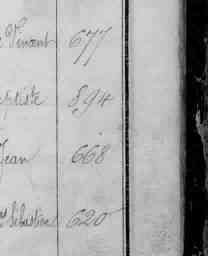 Vincent 677
aptiste 894
Jean 668
Sébastien 620